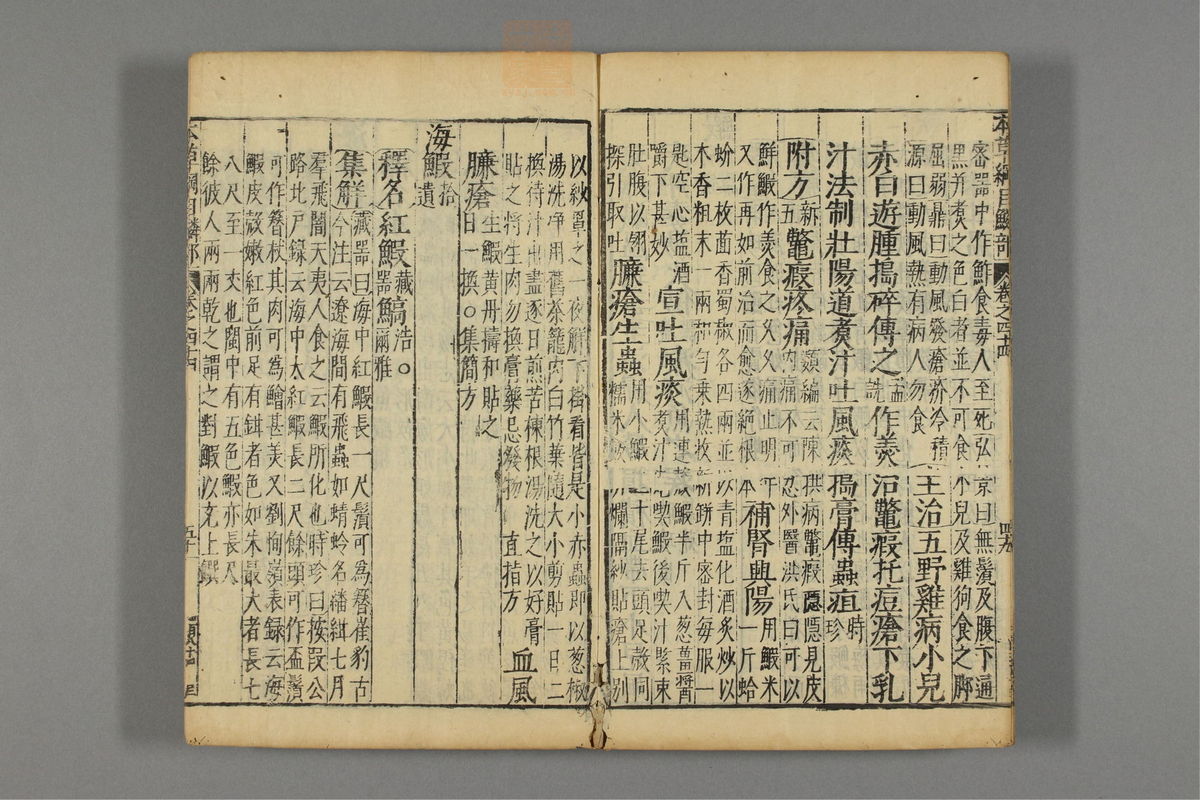 本草綱目鱗部 卷之四十四 四九
密器中作鮓食毒人至死弘景曰無鬚及腹下通
黑并煮之色白者並不可食小兒及雞狗食之脚
屈弱鼎曰動風發瘡疥冷積
源曰動風熱有病人勿食
主治五野雞病小兒
赤白遊腫搗碎傅之孟詵作羹治鼈瘕托痘瘡下乳
汁法制壯陽道煮汁吐風痰搗膏傅蟲疽時珍
附方新五鼈瘕疼痛
類編云陳拱病鼈瘕隱隱見皮
內痛不可忍外醫洪氏曰可以
鮮鰕作羹食之久久痛止明年
又作再如前治而愈遂絕根本
補腎興陽
用鰕米
一斤蛤
蚧二枚茴香蜀椒各四兩並以青盐化酒炙炒以
木香粗末一兩和勻乗熱收新瓶中密封每服一
匙空心盐酒
嚼下甚妙
宣吐風痰
用連殻鰕半斤入葱薑醬
煮汁先喫鰕後喫汁緊束
肚腹以翎
探引取吐
臁瘡生蟲
用小鰕三十尾去頭足殻同
糯米飯研爛隔紗貼瘡上別
以紗罩之一夜觧下掛看皆是小赤蟲即以葱椒
湯洗淨用舊茶籠內白竹葉隨大小剪貼一日二
換待汁出盡逐日煎苦楝根湯洗之以好膏
貼之將生肉勿換膏藥忌發物直指方
血風
臁瘡
生鰕黃丹擣和貼之
日一換○集簡方
海鰕拾遺
釋名紅鰕藏器鰝浩○爾雅
集觧
藏器曰海中紅鰕長一尺鬚可為簪崔豹古
今注云遼海間有飛蟲如蜻蛉名繙緝七月
羣飛闇天夷人食之云鰕所化也時珍曰按段公
路北户錄云海中大紅鰕長二尺餘頭可作盃鬚
可作簪杖其肉可為鱠甚美又劉恂嶺表録云海
鰕皮殻嫩紅色前足有鉗者色如朱最大者長七
八尺至一丈也閩中有五色鰕亦長尺
餘彼人兩兩乾之謂之對鰕以充上饌
本草綱目鱗部 卷之四十四 五十